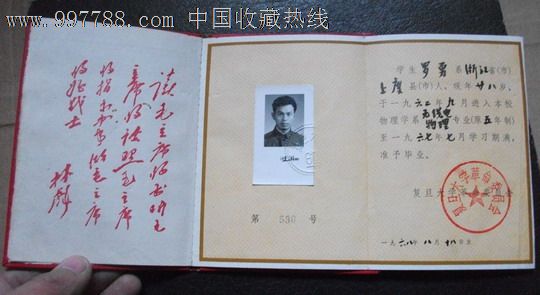 www.997788.com 中国收藏热线
读毛主席的书听毛
主席的话照毛主席
的指示办事做毛主席
的好战士
林彪
第 530 号
学生 罗勇 系浙江省(市)
上虞县(市)人，现年廿八岁，
于一九六二年九月进入本校
物理学系无线电物理专业(原五年制)
至一九六七年七月学习期满，
准予毕业。
复旦大学革命委员会
复旦大学革命委员会
一九六八年八月十八日